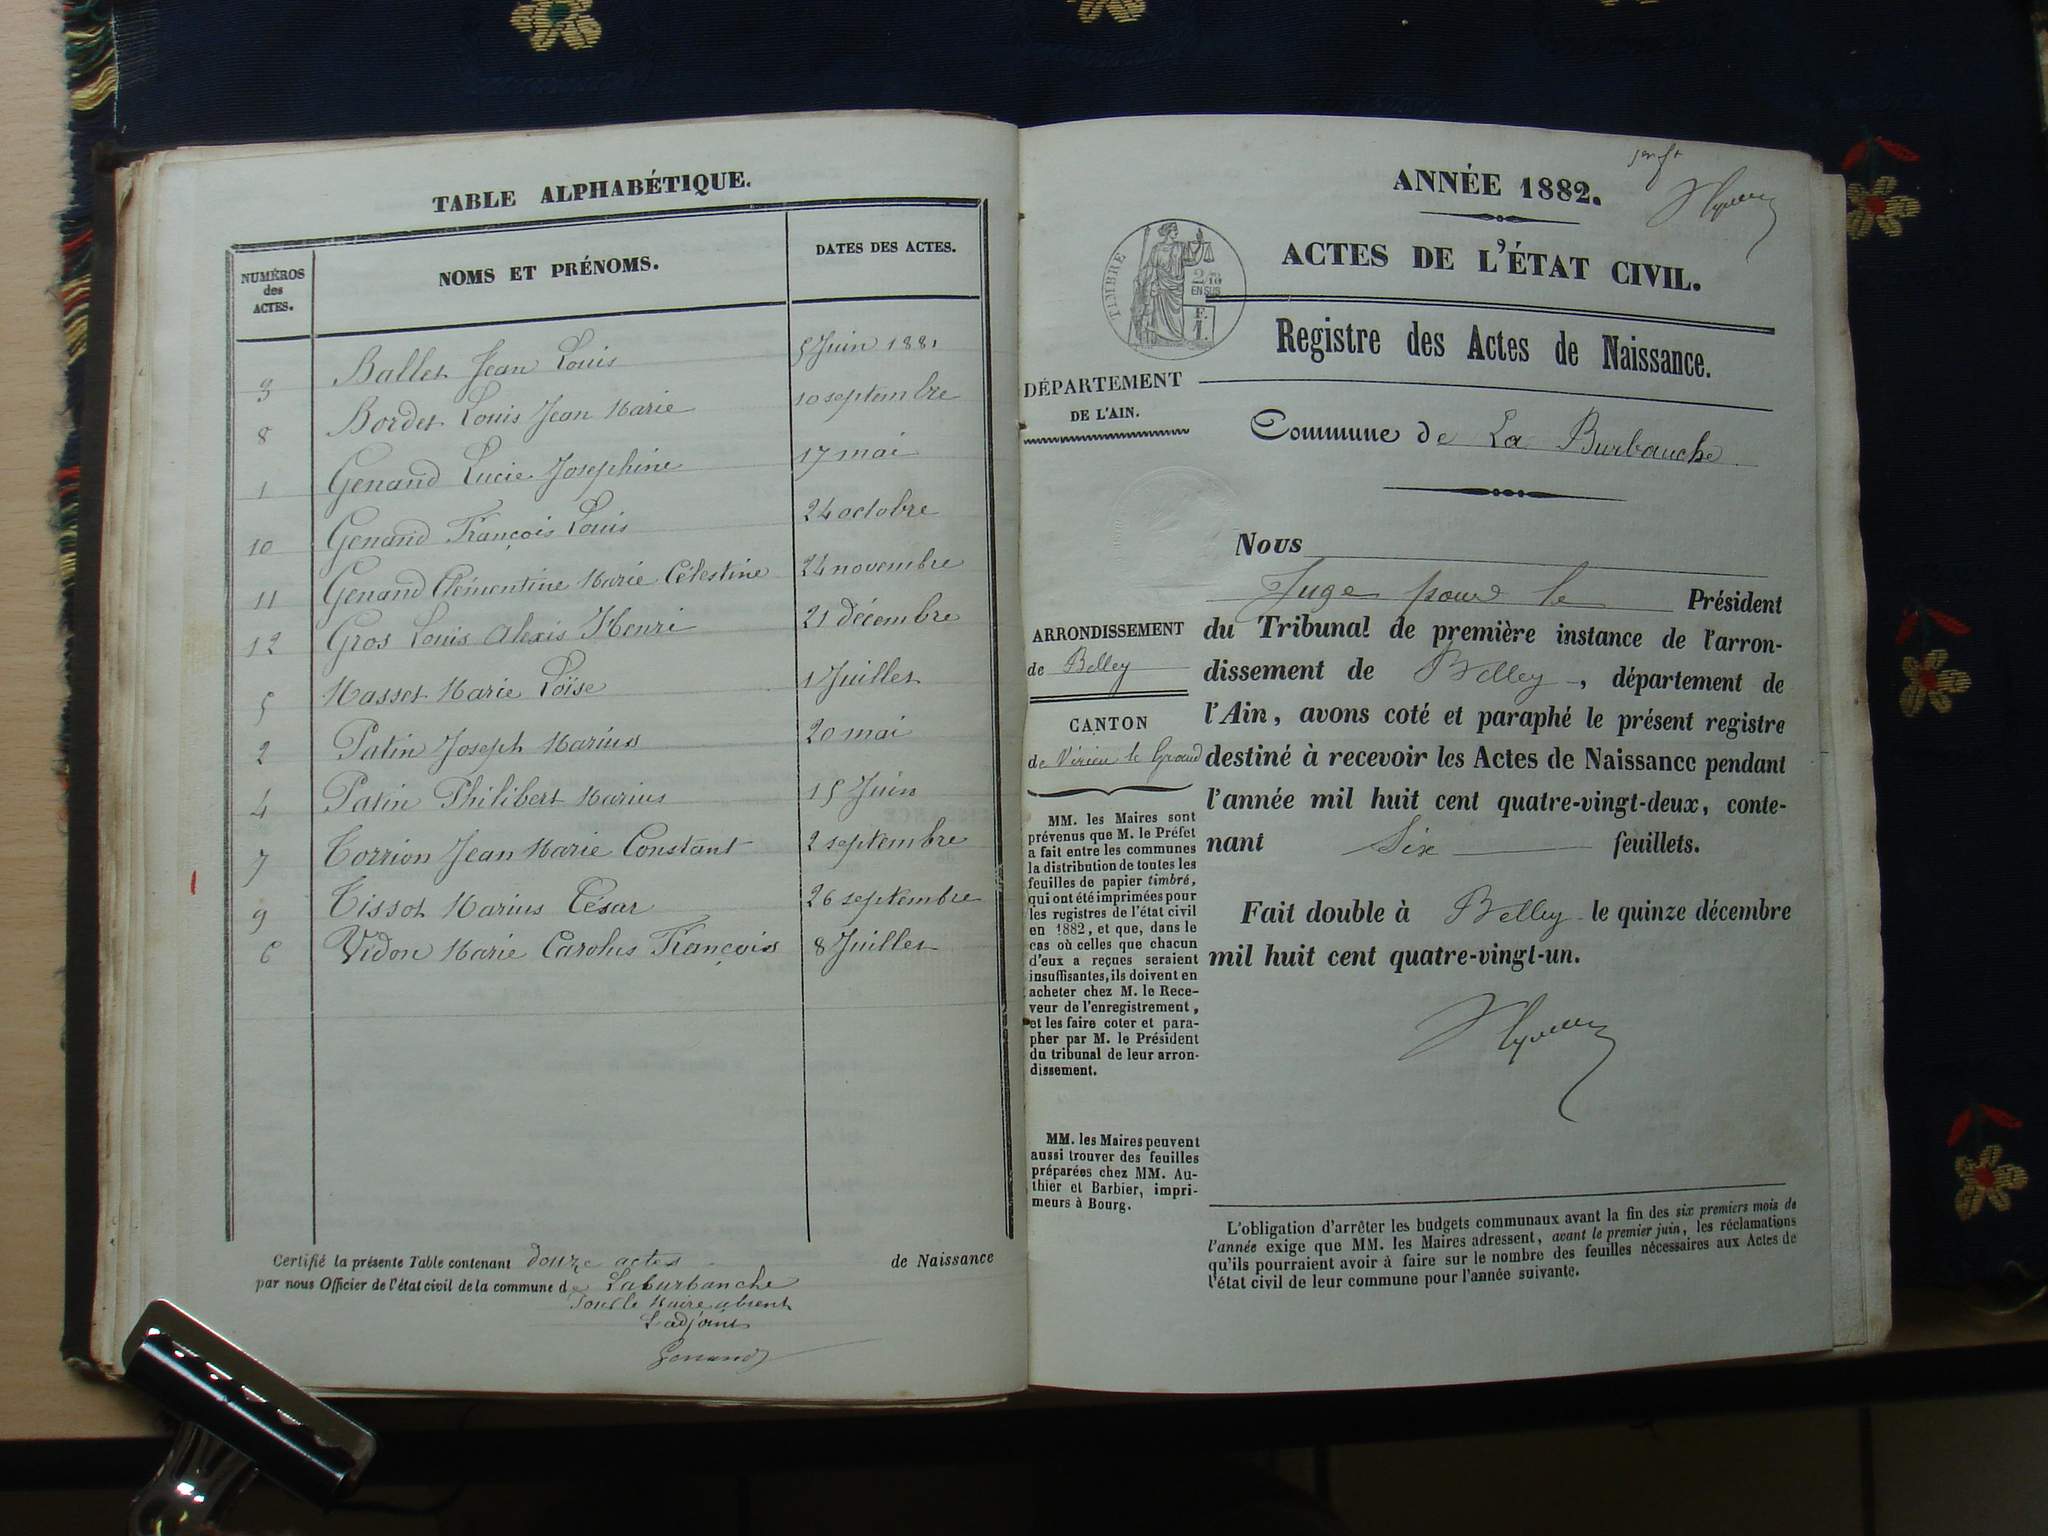 TABLE ALPHABÉTIQUE.
NUMÉROS des ACTES. NOMS ET PRÉNOMS. DATES DES ACTES.
3 Ballet Jean Louis 5 Juin 1881
8 Bordet Louis Jean Marie 10 septembre
1 Genand Lucie Josephine 17 mai
10 Genand François Louis 24 octobre
11 Genand Clémentine Marie Célestine 24 novembre
12 Gros Louis Alexis Henri 21 décembre
5 Masset Marie Loïse 1 Juillet
2 Patin Joseph Marius 20 mai
4 Patin Philibert Marius 15 Juin
7 Torrion Jean Marie Constant 2 septembre
9 Tissot Marius César 26 septembre
6 Vidon Marie Carolus François 8 Juillet
Certifié la présente Table contenant douze actes de Naissance
par nous Officier de l'état civil de la commune de Laburbanche
Pour le Maire absent
L'adjoint
Genand
ANNÉE 1882.
ACTES DE L'ÉTAT CIVIL.
TIMBRE
2/10
EN SUS
F.
1.
Registre des Actes de Naissance.
DÉPARTEMENT
DE L'AIN.
Commune de La Burbanche
Nous
Juge pour le Président
du Tribunal de première instance de l'arron-
dissement de Belley, département de
l'Ain, avons coté et paraphé le présent registre
destiné à recevoir les Actes de Naissance pendant
l'année mil huit cent quatre-vingt-deux, conte-
nant Six feuillets.
Fait double à Belley le quinze décembre
mil huit cent quatre-vingt-un.
ARRONDISSEMENT
de Belley
CANTON
de Virieu le Grand
MM. les Maires sont
prévenus que M. le Préfet
a fait entre les communes
la distribution de toutes les
feuilles de papier timbré,
qui ont été imprimées pour
les registres de l'état civil
en 1882, et que, dans le
cas où celles que chacun
d'eux a reçues seraient
insuffisantes, ils doivent en
acheter chez M. le Rece-
veur de l'enregistrement,
et les faire coter et para-
pher par M. le Président
du tribunal de leur arron-
dissement.
MM. les Maires peuvent
aussi trouver des feuilles
préparées chez MM. Au-
thier et Barbier, impri-
meurs à Bourg.
L'obligation d'arrêter les budgets communaux avant la fin des six premiers mois de
l'année exige que MM. les Maires adressent, avant le premier juin, les réclamations
qu'ils pourraient avoir à faire sur le nombre des feuilles nécessaires aux Actes de
l'état civil de leur commune pour l'année suivante.